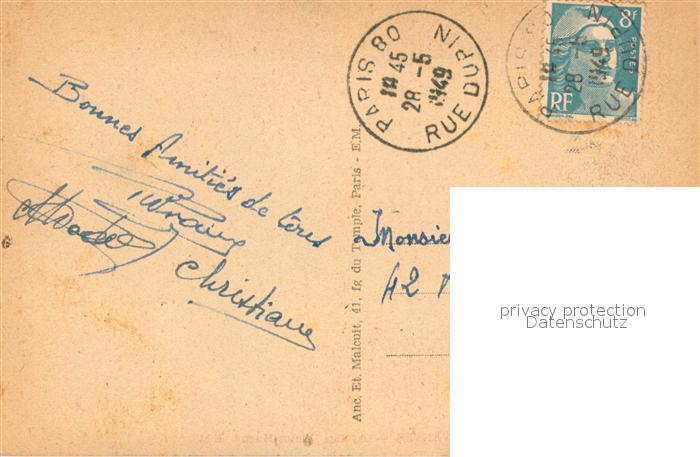 Bonnes Amitiés de tous
Christiane
PARIS 80
18 45
28 -5
1949
RUE DUPIN
PARIS 80
18 45
28 -5
1949
RUE DUPIN
8F
POSTES
RF
Anc. Et. Malcuit, 41, fg du Temple, Paris - E.M.
Monsie
42
privacy protection
Datenschutz